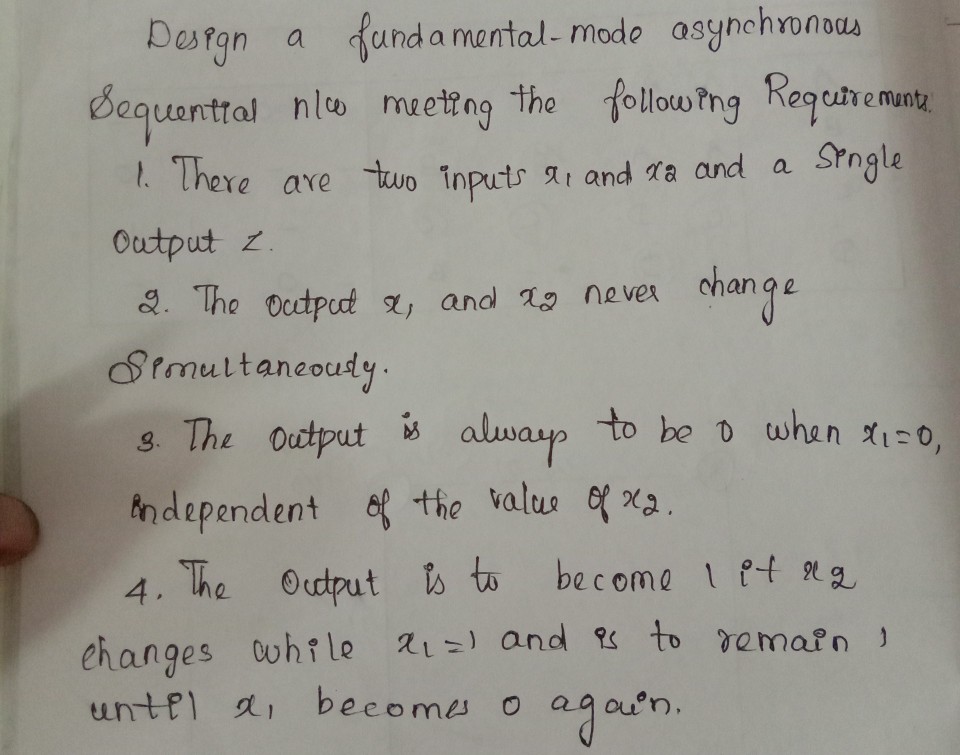 Design a fundamental-mode asynchronous
Sequential n/w meeting the following Requirements.
1. There are two inputs x1 and x2 and a Single
Output Z.
2. The output x1 and x2 never change
Simultaneously.
3. The output is always to be 0 when x1=0,
independent of the value of x2.
4. The Output is to become 1 if x2
changes while x1=1 and is to remain 1
until x1 becomes 0 again.